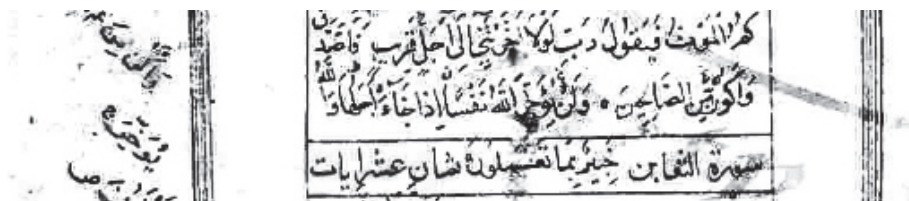 كم الموت فيقول رب لولا اخرتني الى اجل قريب فاصد
واكون من الصالحين ولن يؤخر الله نفسا اذا جاء اجلها وا
سورة التغابن خبير بما تعملون ثمان عشر ايات
واكن من